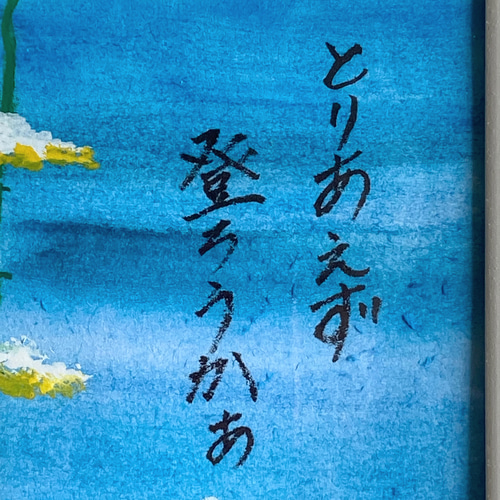 とりあえず
登ろうかあ